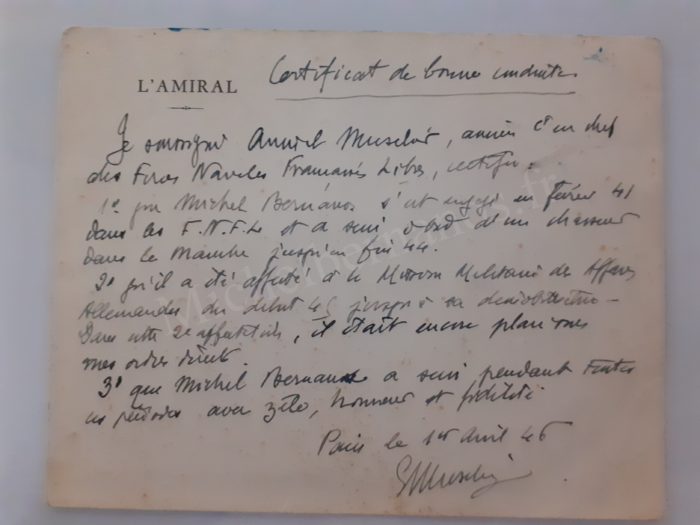 L'AMIRAL
Certificat de bonne conduite
Je soussigné Amiral Muselier, ancien Ct en chef
des Forces Navales Françaises Libres, certifie :
1° que Michel Bernanos s'est engagé en février 41
dans les F.N.F.L et a servi à bord d'un chasseur
dans la Manche jusqu'en fin 44.
2° qu'il a été affecté à la Mission Militaire des Affaires
Allemandes du début 45 jusqu'à sa démobilisation -
Dans cette 2e affectation, il était encore placé sous
mes ordres directs.
3° que Michel Bernanos a servi pendant toutes
ces périodes avec zèle, honneur et fidélité
Paris le 1er Avril 46
EMuselier